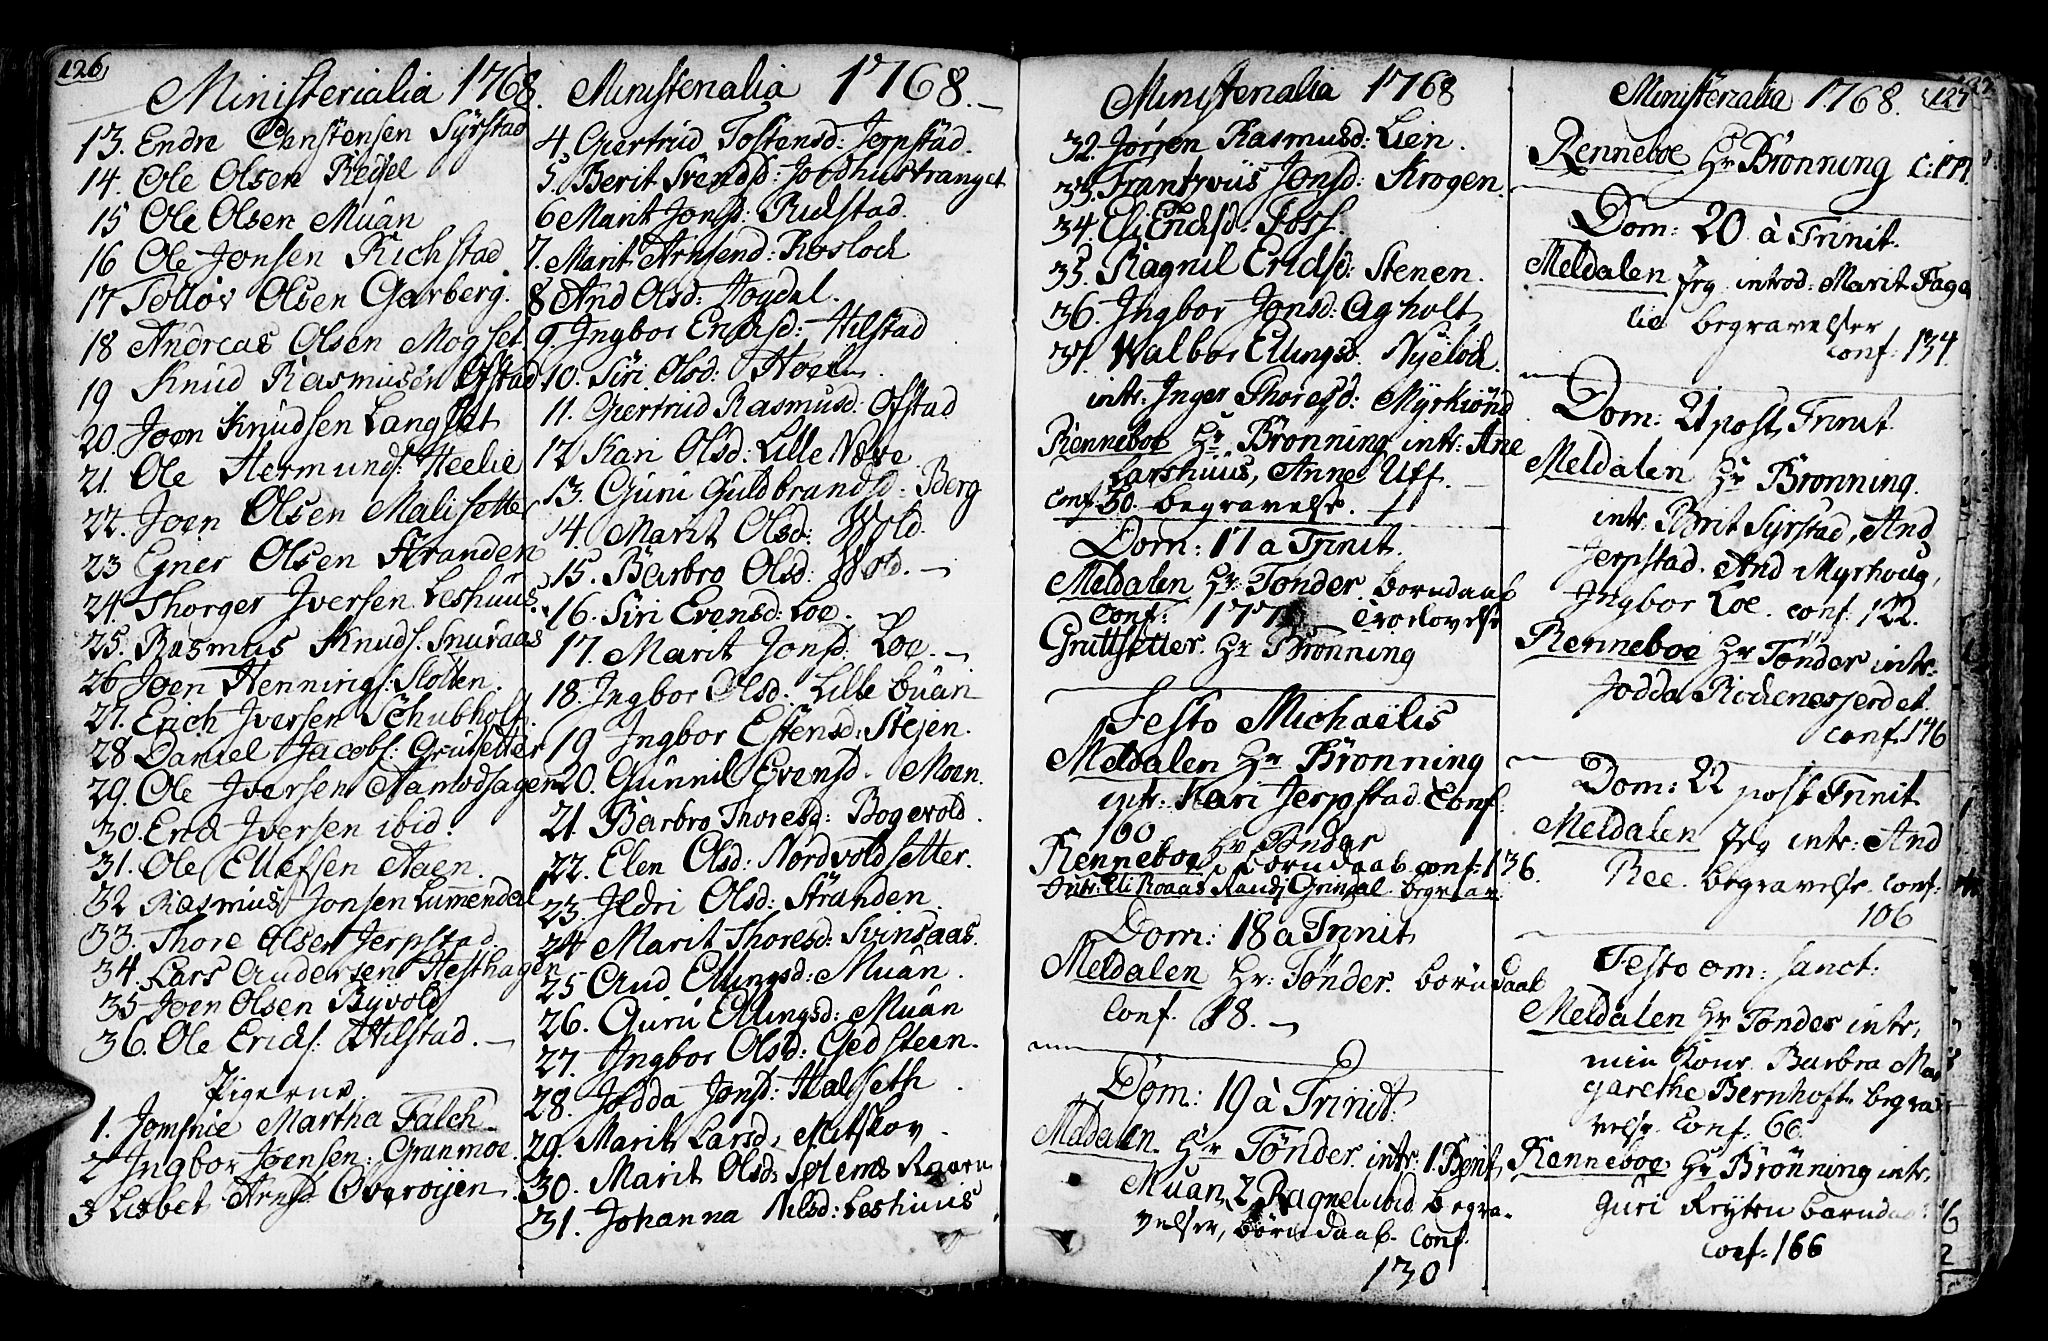 126
Ministerialia 1768.
13. Endre Christensen Syrstad
14. Ole Olsen Reisel
15 Ole Olsen Muan
16 Ole Jonsen Richstad
17 Tolløv Olsen Garberg.
18 Andreas Olsen Mogset
19 Knud Rasmusen Ofstad
20. Joen Knudsen Langklet
21. Ole Hermunds: Heelie
22. Joen Olsen Malisetter
23 Egner Olsen Stranden
24. Thorger Iversen Leshuus.
25. Rasmus Knuds. Snuraas
26 Joen Hennings: Slotten.
27. Erich Iversen Schubholt.
28 Daniel Jacobs: Grutsetter
29. Ole Iversen Aamodhagen
30. Erich Iversen ibid.
31. Ole Ellefsen Aaen.
32 Rasmus Jonsen Lummendal
33. Thore Olsen Jerpstad.
34. Lars Andersen Hesthagen
35 Joen Olsen Byvold
36. Ole Erichs: Hilstad.
Pigerne
1. Jomfrue Martha Falch
2 Ingbor Joensen: Granmoe.
3 Lisbet Arnsd Overøijen
Ministerialia 1768.
4. Giertrud Tostensd: Jerpstad.
5. Berit Svendsd: Joodhustranget
6 Marit Jonsd: Ridstad.
7. Marit Arnsend: Kosloch
8 And Olsd: Jogdal.
9. Ingbor Erichsd: Hilstad
10. Siri Olsd: Hoel
11. Giertrud Rasmusd: Ofstad
12 Kari Olsd: Lille Næve
13. Guru Guldbrandsd: Berg
14. Marit Olsd: Wold.
15. Barbro Olsd: Wold.
16. Siri Evensd: Loe.
17. Marit Jonsd: Loe.
18. Ingbor Olsd: Lille buan
19 Ingbor Estensd: Steien.
20. Gunnil Evensd. Moen.
21. Barbro Thoresd: Bogevold.
22. Elen Olsd: Nordvoldsetter.
23. Ildri Olsd: Stranden.
24 Marit Thoresd: Svinsaas.
25 Aud Ellingsd: Muan.
26. Guru Ellingsd: Muan
27. Ingbor Olsd: Gedsteen.
28. Jodda Jonsd: Halseth.
29. Marit Larsd: Mitskov.
30. Marit Olsd: Solems Raaen
31. Johanna Nilsd: Leshuus
Ministerialia 1768
32. Jørgen Rasmusd: Lien.
33. Frantzvüs Jonsd: Krogen.
34 Eli Erichsd: Foss.
35. Ragnil Erichsd: Stenen.
36. Ingbor Jonsd: Agholt
37. Walbor Ellingsd. Nyeløch.
intr: Inger Thoresd: Myrkiønd
Renneboe Hr Brønning intr: Ane
Larshuus, Anne Uff.
conf. 30. begravelse.
Dom: 17 a Trinit.
Meldalen Hr: Tønder. borndaab
Conf: 177 Troelovelse
Gruttsetter. Hr Brønning
Festo Michaëlis
Meldalen Hr Brønning
intr: Kari Jerpstad. Conf.
100
Hr Tønder
Renneboe borndaab conf: 136.
Intr: Eli Roaas, Randi Grindal begrav.
Dom: 18 a Trinit
Meldalen Hr: Tønder. borndaab
Conf. 98.
Dom: 19 à Trinit.
Meldalen. Hr Tønder. intr: 1. Berit
Muan, 2. Ragnel ibid begra-
velser, børndaab. Conf.
130
Ministerialia 1768.
127
Renneboe Hr Brønning C: 171.
Dom: 20 à Trinit.
Meldalen Jeg introd: Marit Fage
lie begravelser
Conf: 134.
Dom: 21 post Trinit
Meldalen Hr Brønning.
intr. Brit Syrstad, And
Jerpstad. And Myrhoug,
Ingbor Loe. conf. 122.
Renneboe Hr Tønder intr:
Jodda Rochenesgjerdet.
conf. 176
Dom: 22 post Trinit
Meldalen Jeg intr: And
Ree. begravelse. conf:
106
Festo om: sanct:
Meldalen Hr Tønder intr.
min Kone. Barbra Mar
garethe Bernhoft begra
velse. Conf: 66.
Renneboe Hr Brønning intr.
Guri Reyten barndaa
Conf: 166